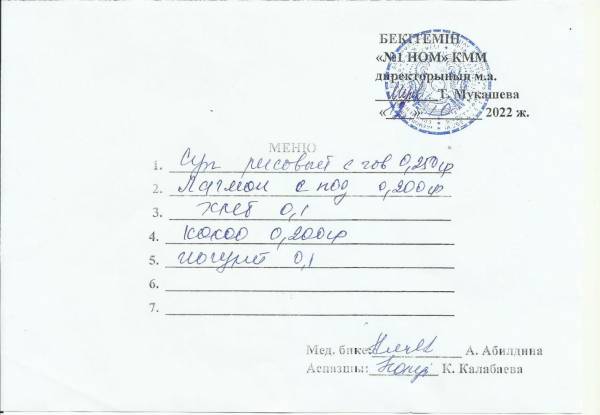 БЕКІТЕМІН
«№1 НОМ» КММ
директорының м.а.
Т. Мукашева
« » 10 2022 ж.
МЕНЮ
1. Суп рисовый с гов 0,250гр
2. Лагман с под 0,200гр
3. Хлеб 0,1
4. какао 0,200гр
5. йогурт 0,1
6.
7.
Мед. бике: А. Абилдина
Аспазшы: К. Калабаева